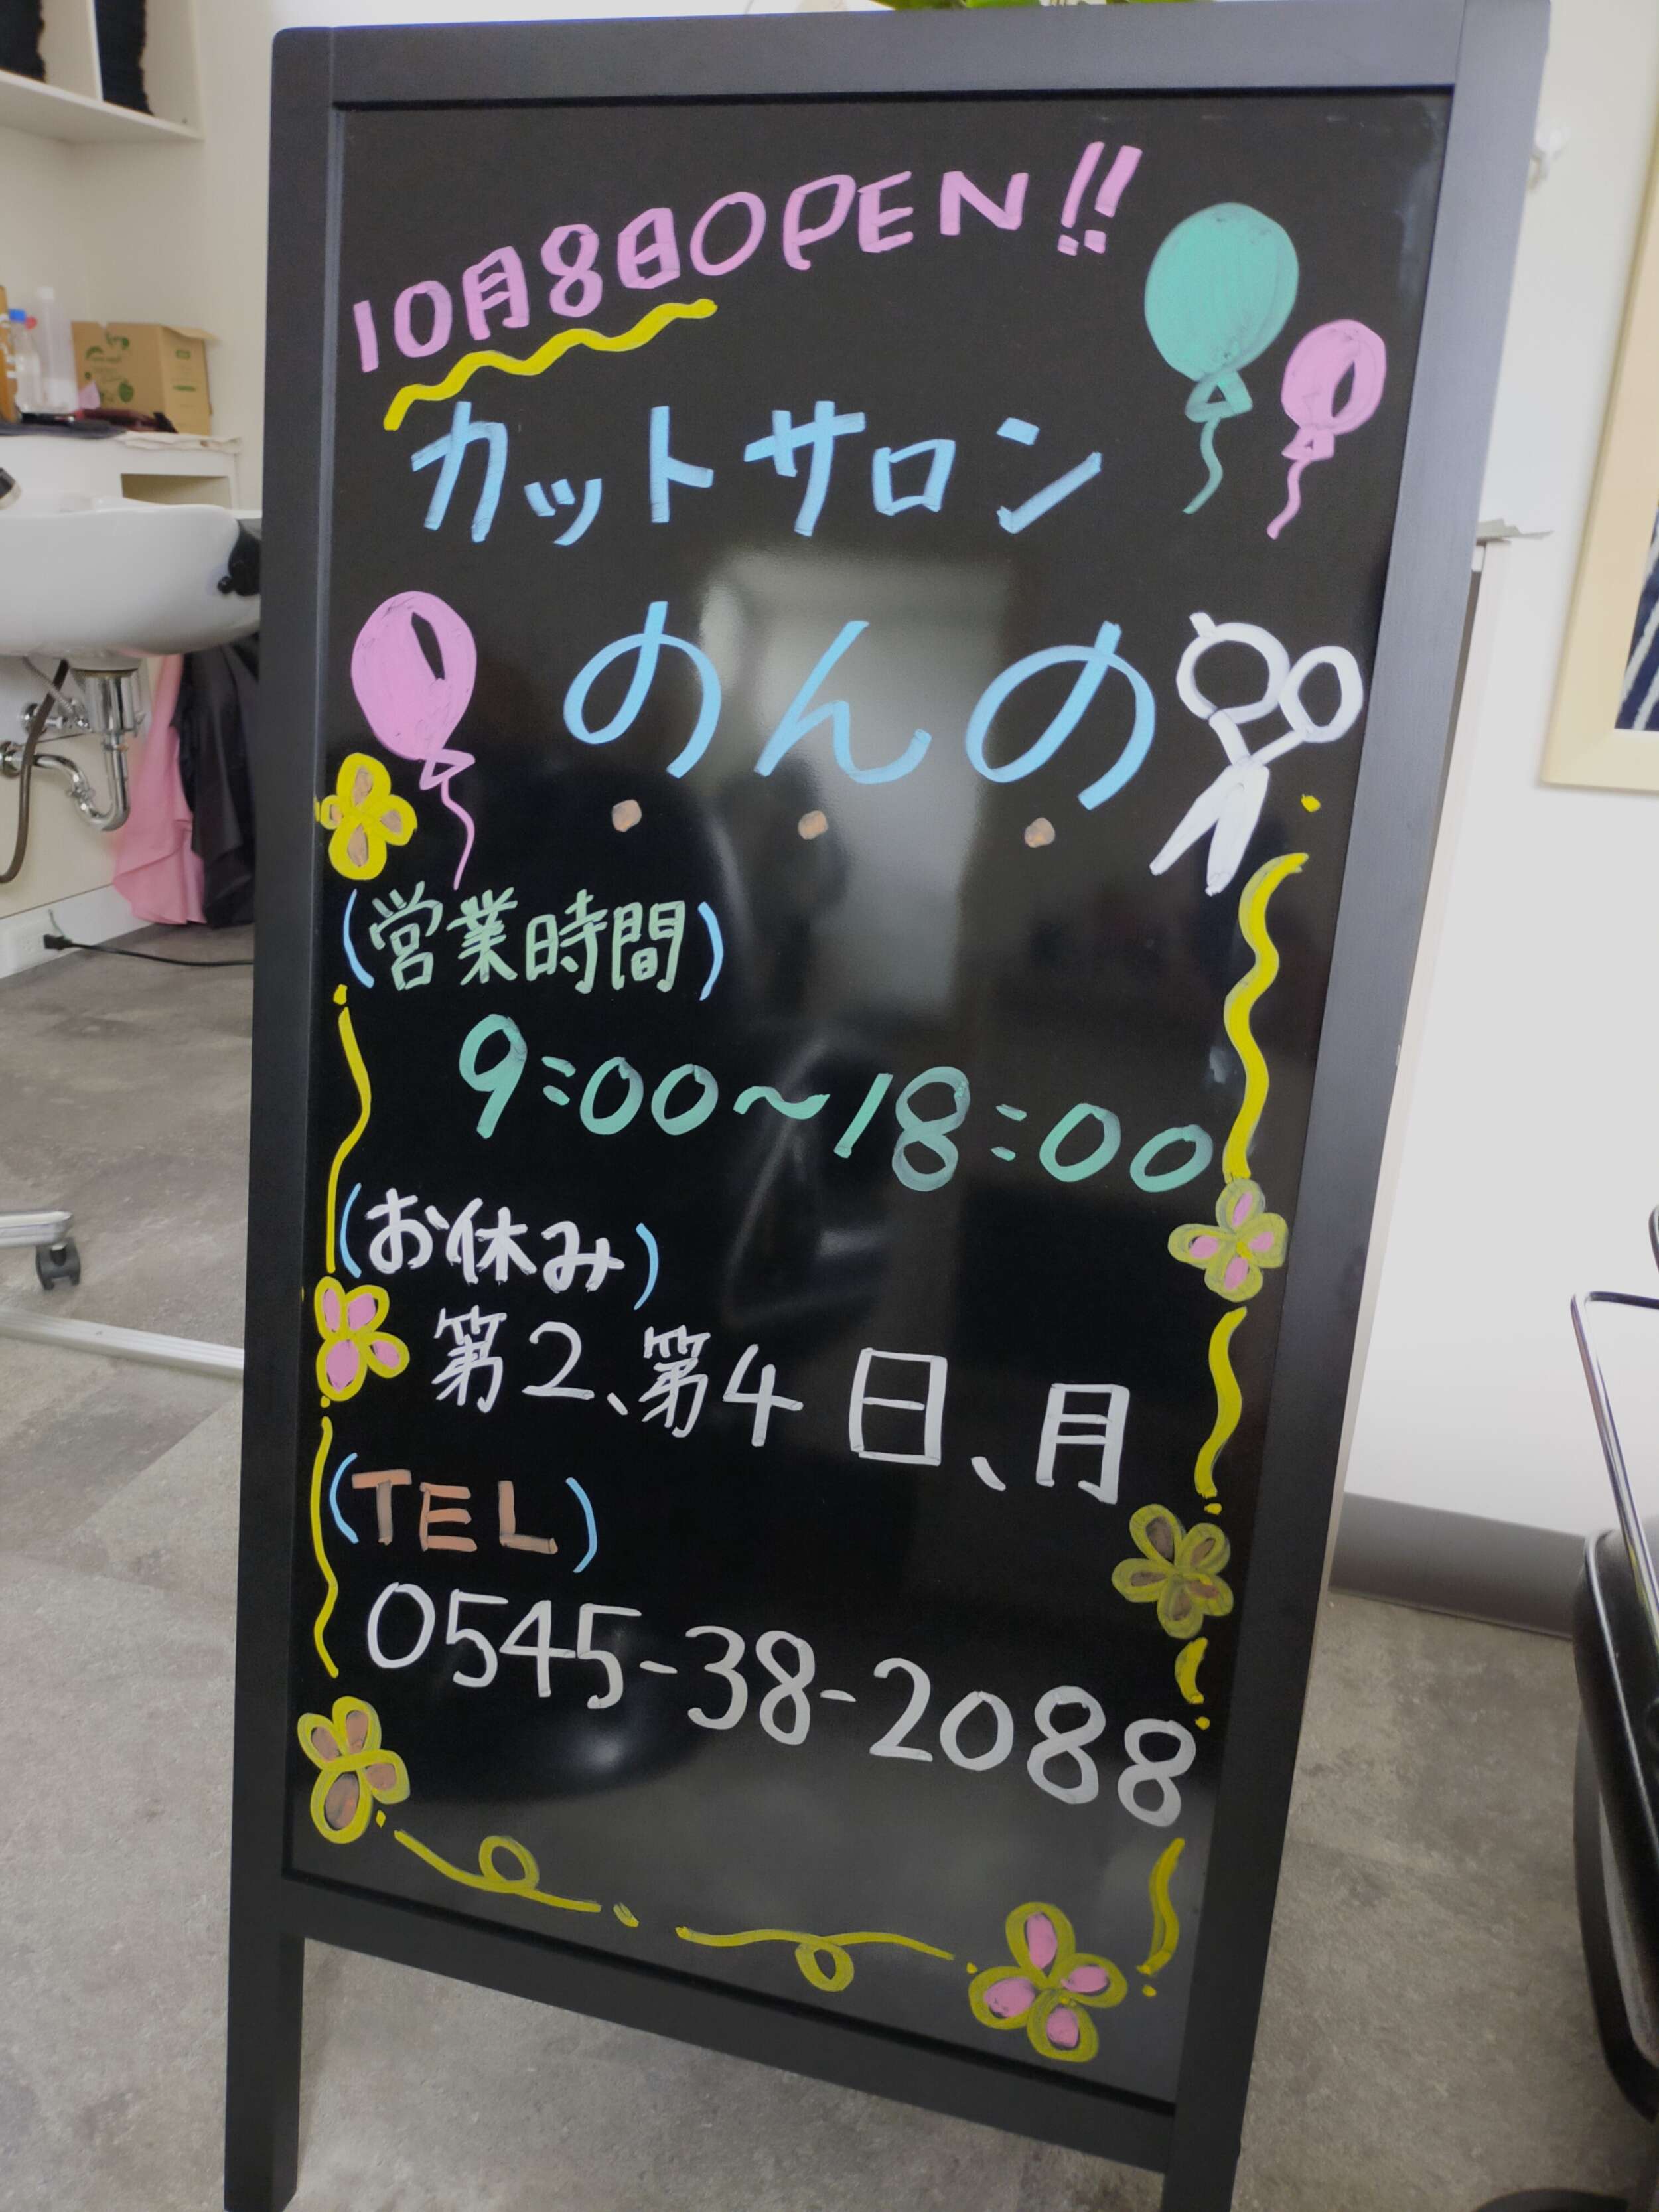 10月8日OPEN!!
カットサロン
のんの
(営業時間)
9:00~18:00
(お休み)
第2、第4 日、月
(TEL)
0545-38-2088